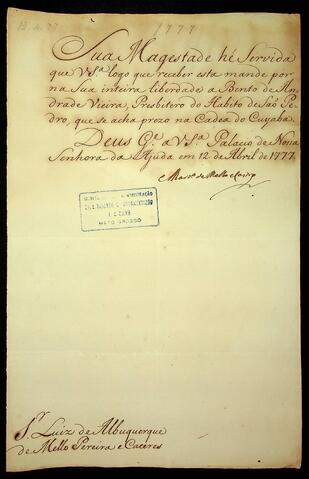 1777
Sua Magestade hé Servida
que V.Sª logo que receber esta mande por
na Sua inteira liberdade a Bento de An
drade Vieira, Presbitero do Habito de Saó Pe
dro, que se acha prezo na Cadea do Cuyaba.
Deus G.e a V.Sª Palacio de Nossa
Senhora da Ajuda em 12 de Abril de 1777.
Mart.º de Mello e Castro
MATO GROSSO
S.r Luiz de Albuquerque
de Mello Pereira e Caceres